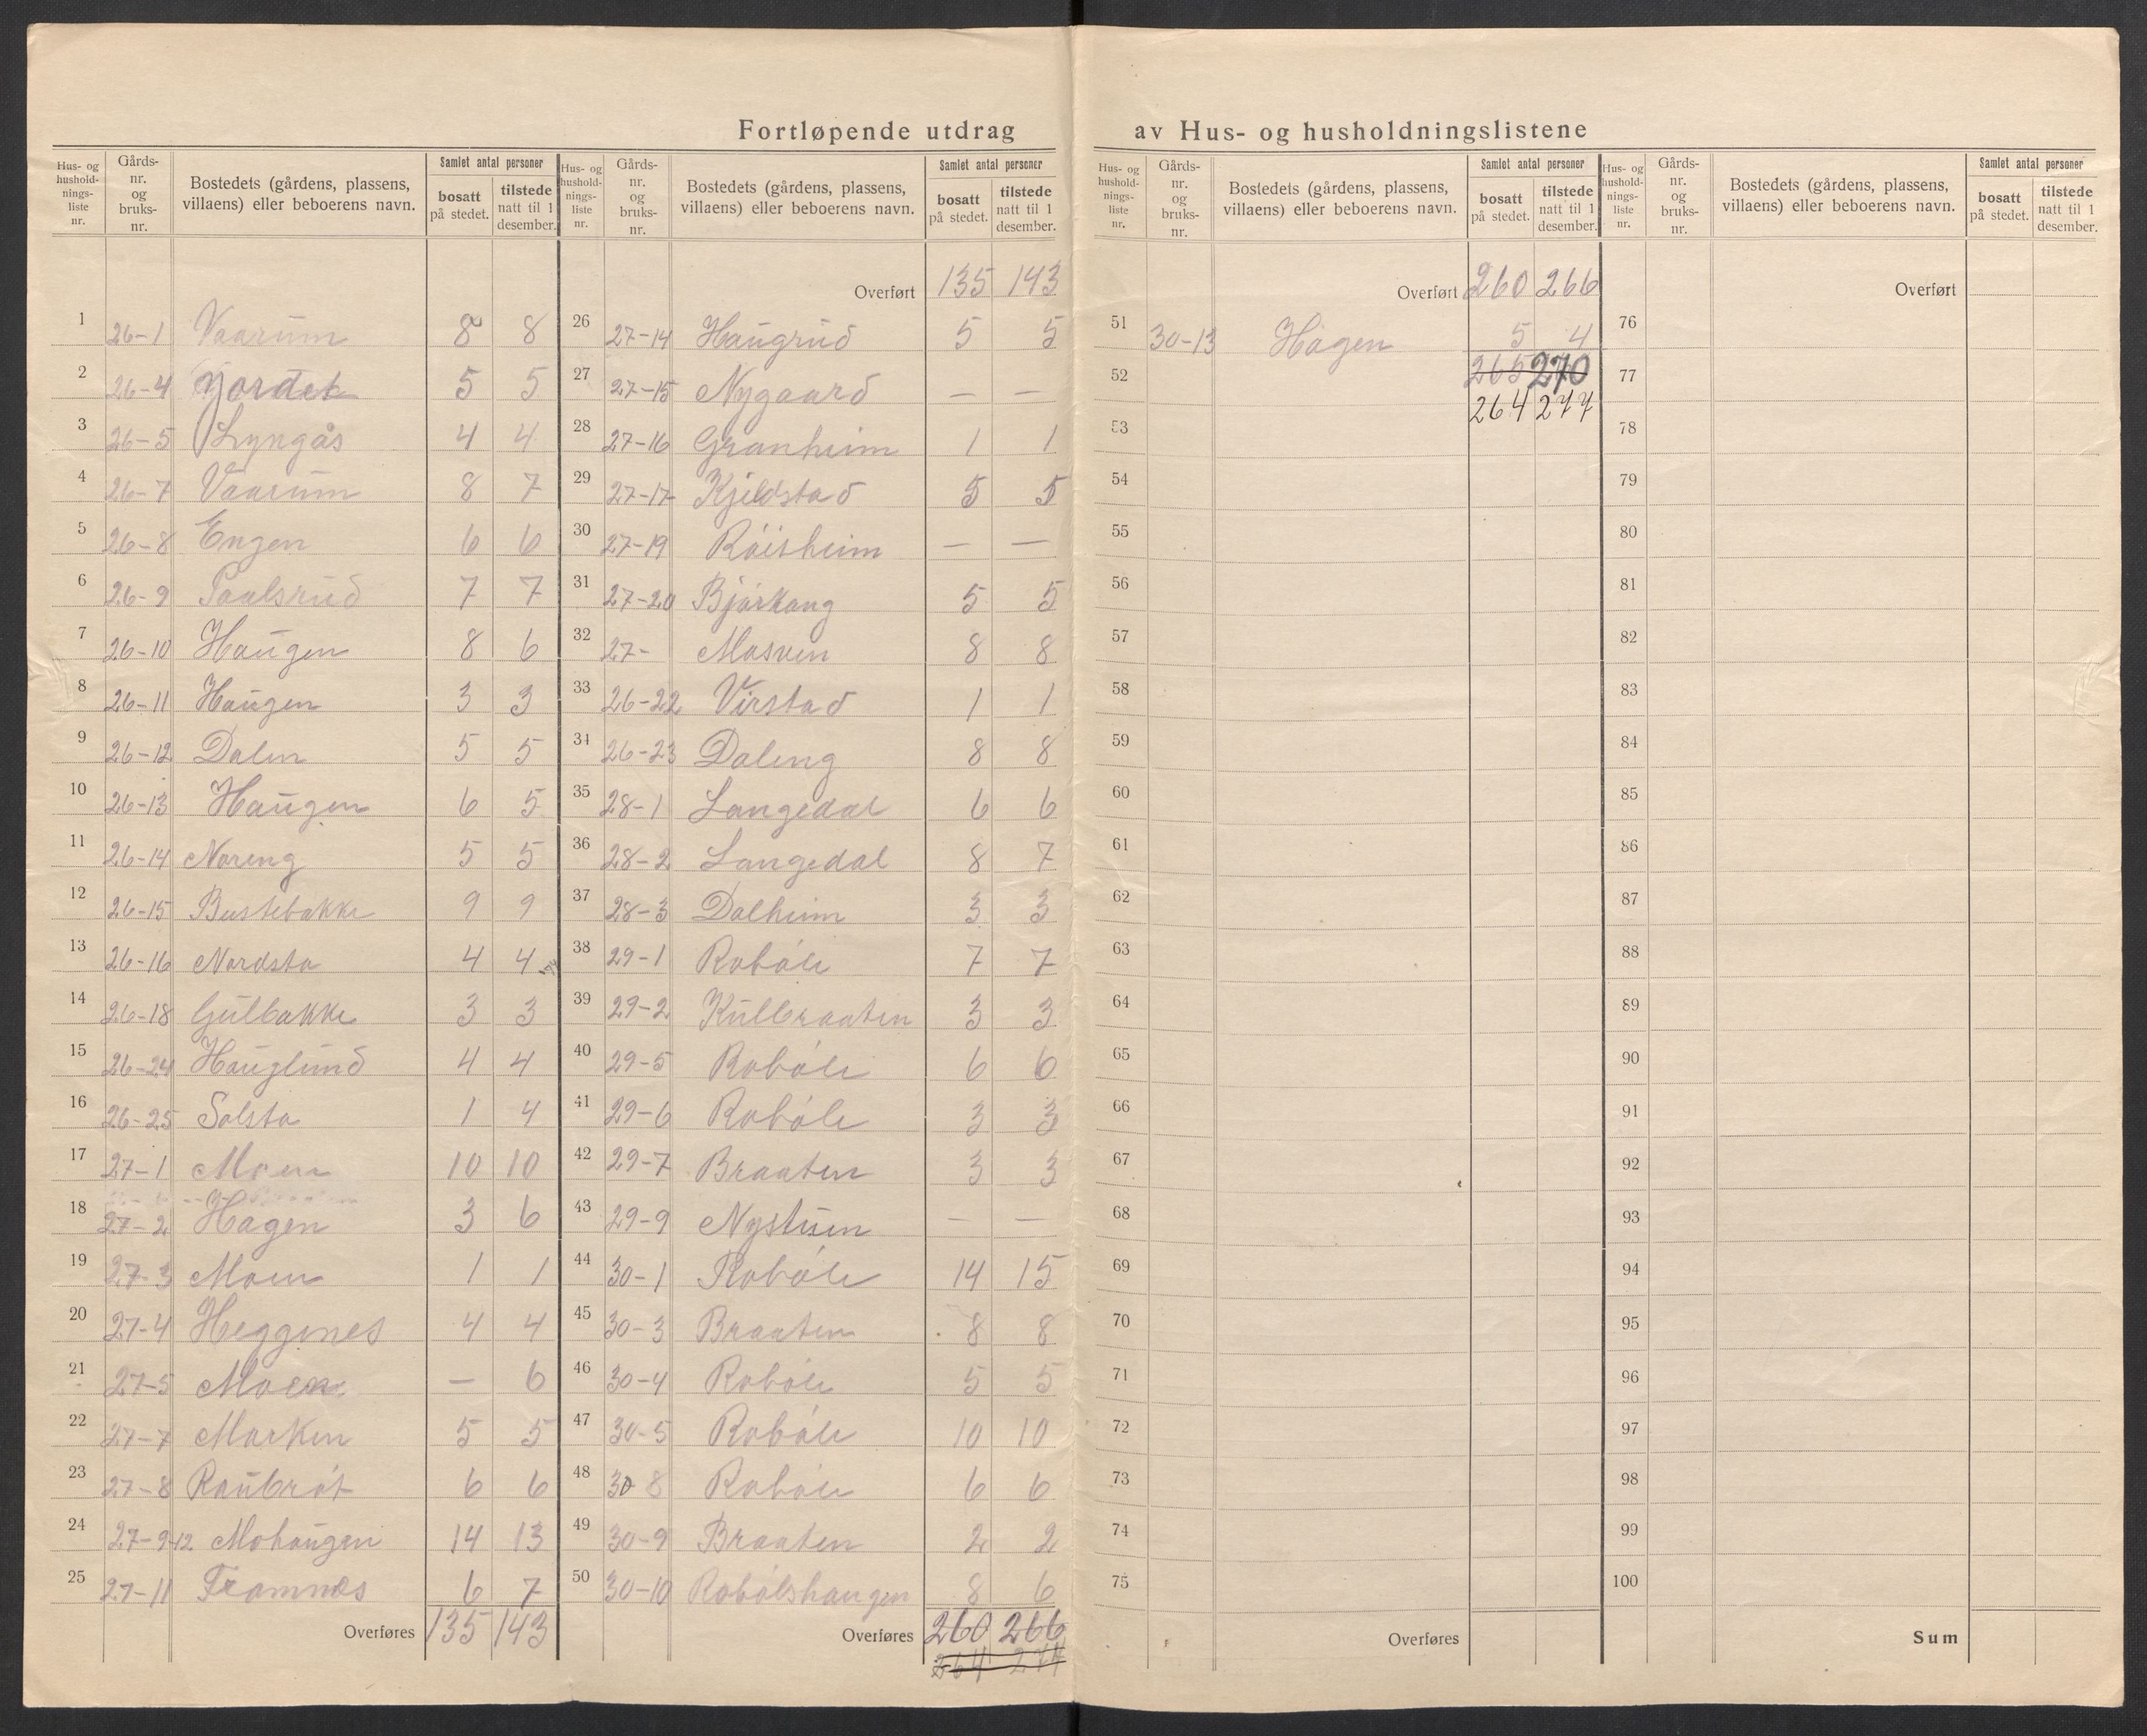 Fortløpende utdrag av Hus- og husholdningslistene
Hus- og husholdnings-liste nr. Gårds-nr. og bruks-nr. Bostedets (gårdens, plassens, villaens) eller beboerens navn. Samlet antal personer bosatt på stedet. tilstede natt til 1 desember.
1 26-1 Vaarum 8 8
2 26-4 Jordet 5 5
3 26-5 Lyngås 4 4
4 26-7 Vaarum 8 7
5 26-8 Engen 6 6
6 26-9 Paalsrud 7 7
7 26-10 Haugen 8 6
8 26-11 Haugen 3 3
9 26-12 Dalen 5 5
10 26-13 Haugen 6 5
11 26-14 Noreng 5 5
12 26-15 Bustebakke 9 9
13 26-16 Nordsta 4 4
14 26-18 Gulbakke 3 3
15 26-24 Hauglund 4 4
16 26-25 Solsta 1 4
17 27-1 Moen 10 10
18 27-2 Hagen 3 6
19 27-3 Moen 1 1
20 27-4 Heggenes 4 4
21 27-5 Moen — 6
22 27-7 Marken 5 5
23 27-8 Raubrøt 6 6
24 27-9-12 Mohaugen 14 13
25 27-11 Framnes 6 7
Overføres 135 143
Hus- og husholdnings-liste nr. Gårds-nr. og bruks-nr. Bostedets (gårdens, plassens, villaens) eller beboerens navn. Samlet antal personer bosatt på stedet. tilstede natt til 1 desember.
Overført 135 143
26 27-14 Haugrud 5 5
27 27-15 Nygaard — —
28 27-16 Granheim 1 1
29 27-17 Kjeldstad 5 5
30 27-19 Røisheim — —
31 27-20 Bjørkang 5 5
32 27- Mosven 8 8
33 26-22 Virstad 1 1
34 26-23 Daleng 8 8
35 28-1 Langedal 6 6
36 28-2 Langedal 8 7
37 28-3 Dalheim 3 3
38 29-1 Robøle 7 7
39 29-2 Kulbraaten 3 3
40 29-5 Robøle 6 6
41 29-6 Robøle 3 3
42 29-7 Braaten 3 3
43 29-9 Nystuen — —
44 30-1 Robøle 14 15
45 30-3 Braaten 8 8
46 30-4 Robøle 5 5
47 30-5 Robøle 10 10
48 30 8 Robøle 6 6
49 30-9 Braaten 2 2
50 30-10 Robølshaugen 8 6
Overføres 260 266
264 277
Hus- og husholdnings-liste nr. Gårds-nr. og bruks-nr. Bostedets (gårdens, plassens, villaens) eller beboerens navn. Samlet antal personer bosatt på stedet. tilstede natt til 1 desember.
Overført 260 266
51 30-13 Hagen 5 4
52 265 270
264 277
53
54
55
56
57
58
59
60
61
62
63
64
65
66
67
68
69
70
71
72
73
74
75
Overføres
Hus- og husholdnings-liste nr. Gårds-nr. og bruks-nr. Bostedets (gårdens, plassens, villaens) eller beboerens navn. Samlet antal personer bosatt på stedet. tilstede natt til 1 desember.
Overført
76
77
78
79
80
81
82
83
84
85
86
87
88
89
90
91
92
93
94
95
96
97
98
99
100
Sum